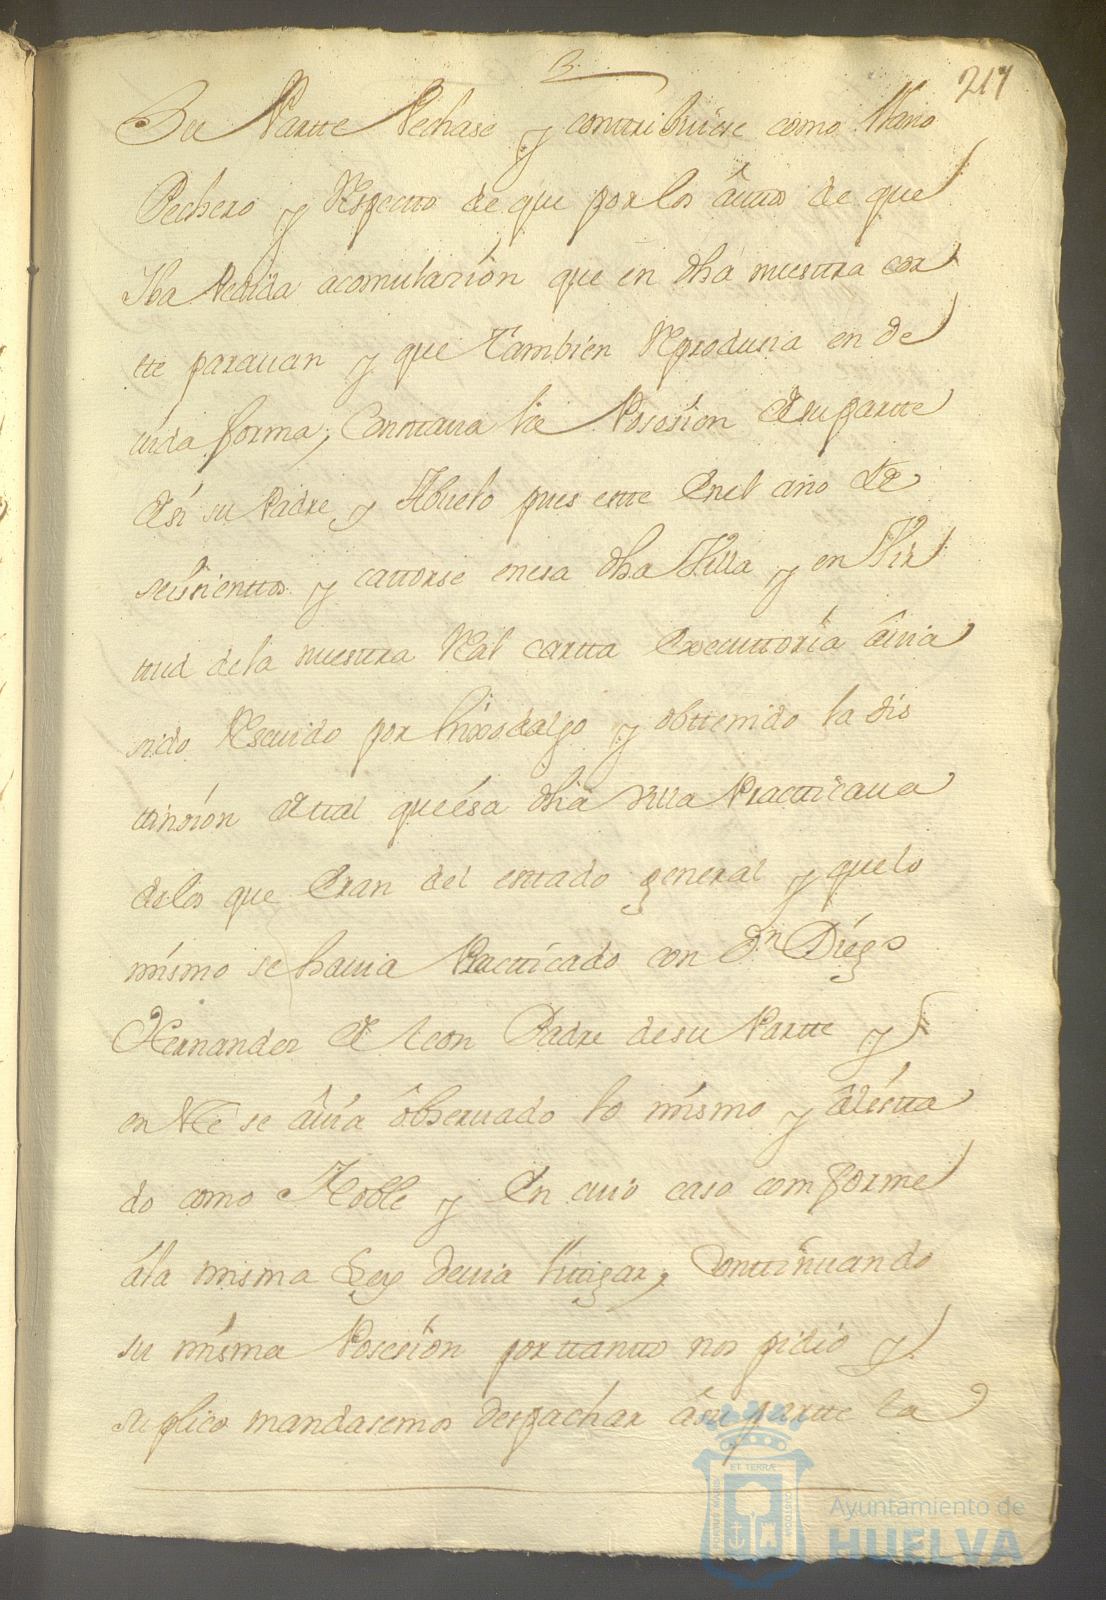 3
217
Su Partte Pechase y conttribuiese como llano
Pechero y Respectto de que por los âuttos de que
Iba Pedida acomulazión que en dha nuestra cor
tte paravan y que también Reproducia en de
vida forma, Consttava la Posesión de su partte
de sí su Padre y Abuelo pues estte en el año de
seiscienttos y cattorse en esa dha Villa y en Vir
ttud de la nuestra Râl cartta executtoria âvia
sido Resevido por hixodalgo y obttenido la dis
ttinsión de ttal que êsa dhâ Villa Practticava
de los que eran del esttado general y que lo
mismo se havia Practticado con Dn Diego
Hernandez de Leon Padre de su Partte y
en êl se âvia ôbservado lo mismo y âl êstta
do como Noble y en cuio caso comforme
âla misma Ley devia littigar, Conttinuando
su misma Posesión por ttantto nos pidió y
suplico mandasemos despachar âsu partte la
ET TERRÆ
Ayuntamiento de
HUELVA